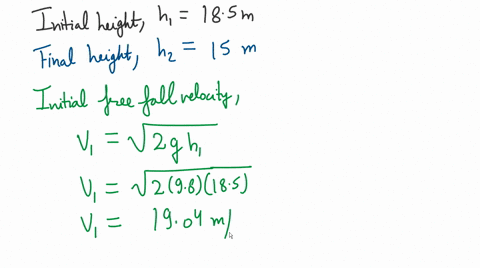 Initial height, h₁ = 18.5 m
Final height, h₂ = 15 m
Initial free fall velocity,
V₁ = √2gh₁
V₁ = √2(9.8)(18.5)
V₁ = 19.04 m/